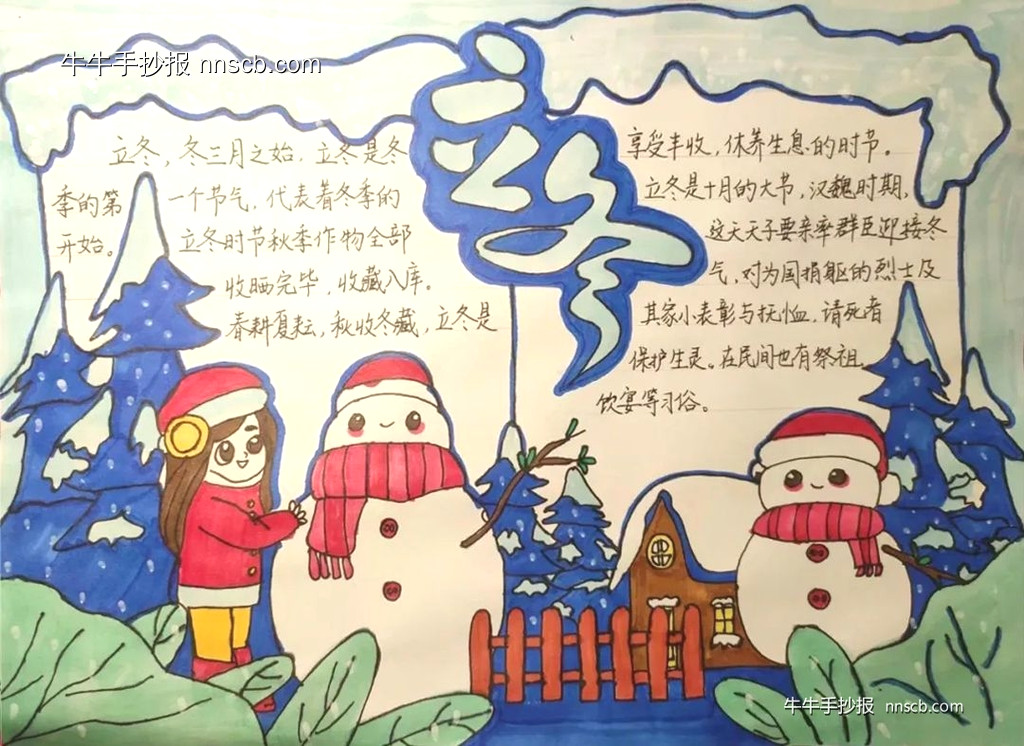 牛牛手抄报 nnscb.com
立冬
立冬，冬三月之始，立冬是冬
季的第一个节气，代表着冬季的
开始。立冬时节秋季作物全部
收晒完毕，收藏入库。
春耕夏耘，秋收冬藏，立冬是
享受丰收，休养生息的时节。
立冬是十月的大节，汉魏时期，
这天天子要亲率群臣迎接冬
气，对为国捐躯的烈士及
其家小表彰与抚恤，请死者
保护生灵。在民间也有祭祖
饮宴等习俗。
牛牛手抄报 nnscb.com